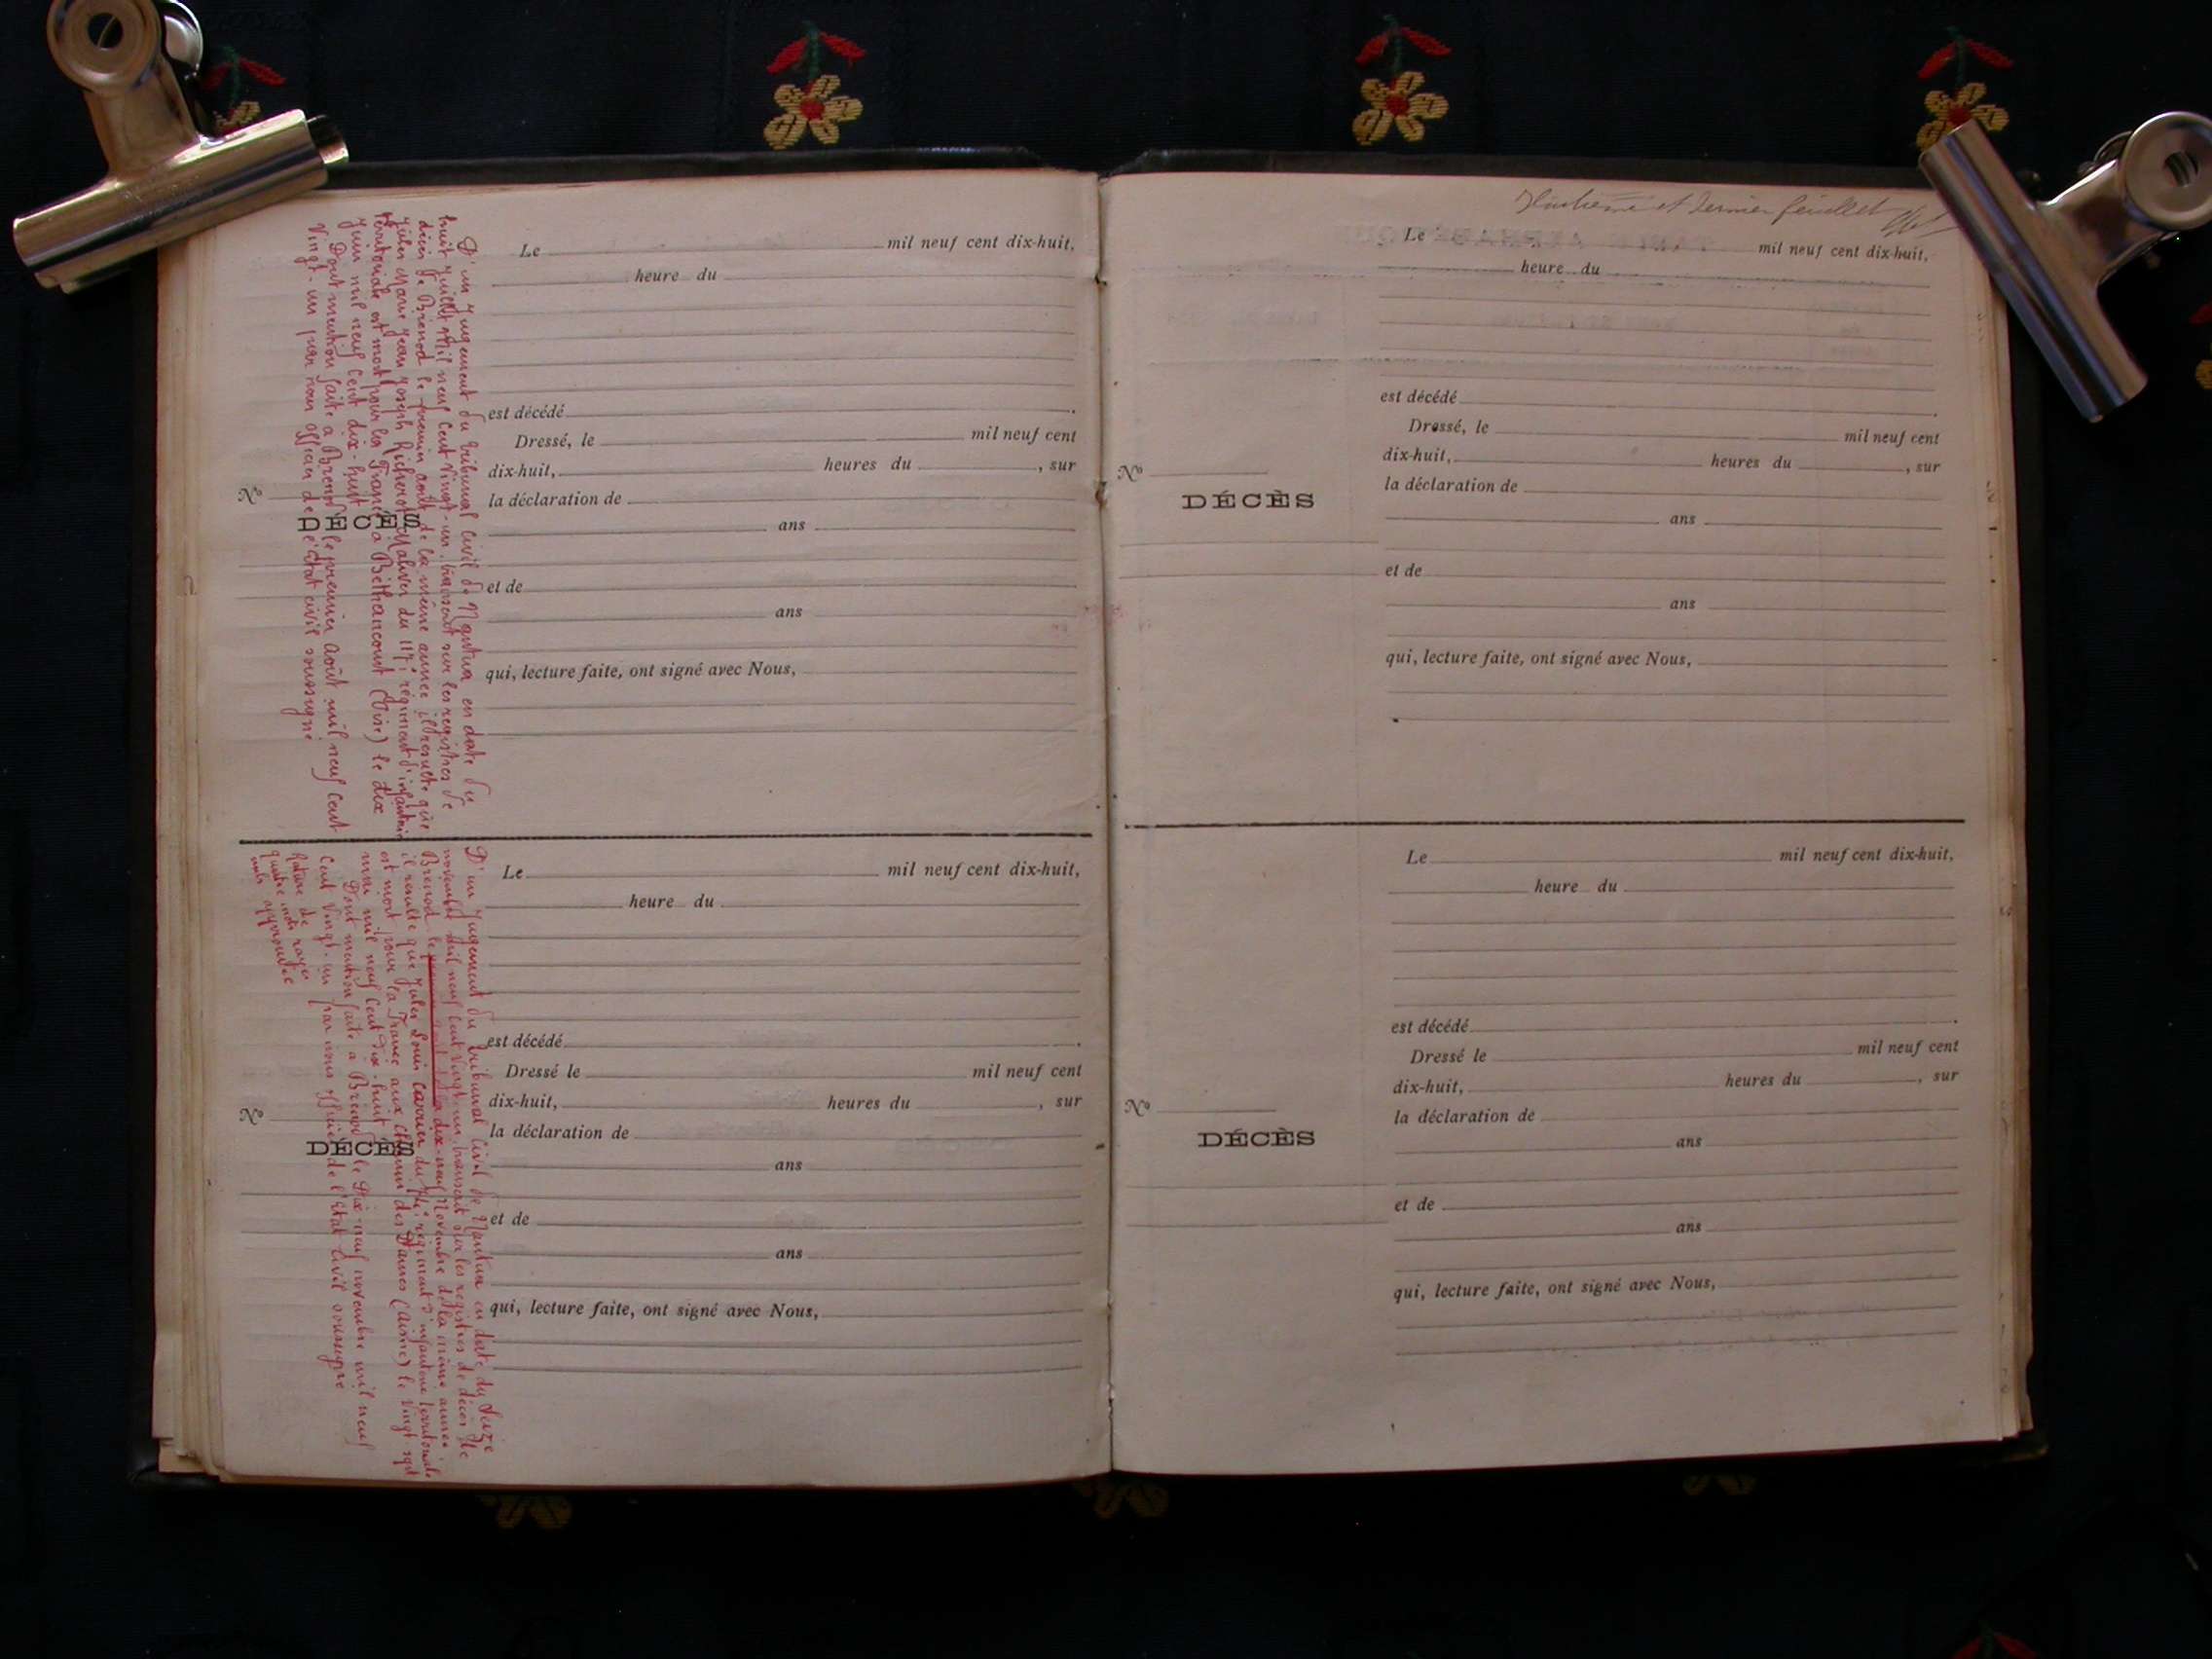 D'un Jugement du tribunal civil de Nantua en date du
huit juillet mil neuf cent vingt-un, transcrit sur les registres de
décès de Brénod le premier août de la même année il résulte que
Jules Marie Jean Joseph Richerot Malivet du 117e régiment d'infanterie
territoriale est mort pour la France à Béthancourt (Oise) le dix
Juin mil neuf cent dix-huit
Dont mention faite à Brénod le premier août mil neuf cent
Vingt-un par nous officier de l'état civil soussigné
Le mil neuf cent dix-huit,
heure du
est décédé .
Dressé, le mil neuf cent
dix-huit, heures du , sur
la déclaration de
ans
et de
ans
qui, lecture faite, ont signé avec Nous,
No
DÉCÈS
D'un Jugement du tribunal civil de Nantua en date du seize
novembre mil neuf cent vingt-un, transcrit sur les registres de décès de
Brénod le dix-neuf Novembre de la même année
il résulte que Jules Louis Carrier du régiment d'infanterie territoriale
est mort pour la France aux Chemin des Dames (Aisne) le vingt sept
mai mil neuf cent dix-huit
Dont mention faite à Brénod le Dix-neuf novembre mil neuf
Cent Vingt-un par nous officier de l'état civil soussigné
Rature de
quatre mots rayés
nuls approuvée
Le mil neuf cent dix-huit,
heure du
est décédé .
Dressé le mil neuf cent
dix-huit, heures du , sur
la déclaration de
ans
et de
ans
qui, lecture faite, ont signé avec Nous,
No
DÉCÈS
et dernier feuillet
Le mil neuf cent dix-huit,
heure du
est décédé .
Dressé, le mil neuf cent
dix-huit, heures du , sur
la déclaration de
ans
et de
ans
qui, lecture faite, ont signé avec Nous,
No
DÉCÈS
Le mil neuf cent dix-huit,
heure du
est décédé .
Dressé le mil neuf cent
dix-huit, heures du , sur
la déclaration de
ans
et de
ans
qui, lecture faite, ont signé avec Nous,
No
DÉCÈS